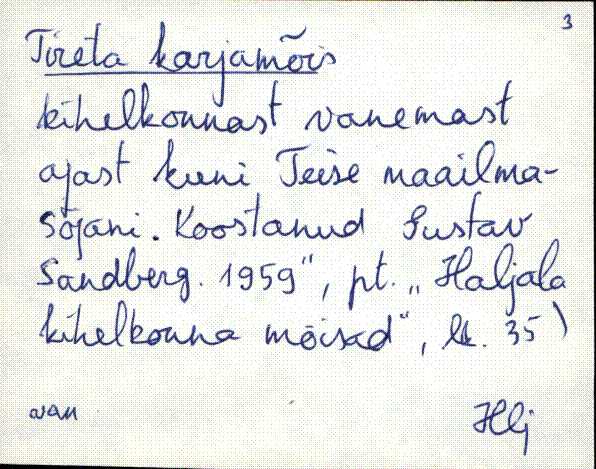 3
Tireta karjamõis
kihelkonnast vanemast
ajast kuni Teise maailma-
sõjani. Koostanud Gustav
Sandberg. 1959", pt. „Haljala
kihelkonna mõisad", lk. 35)
van Hlj